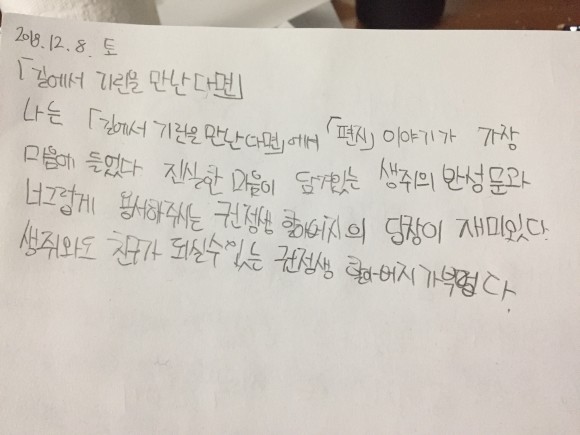 2018. 12. 8. 토
「길에서 기린을 만난다면」
나는 「길에서 기린을 만난다면」에서 「편지」 이야기가 가장
마음에 들었다 진실한 마음이 담겨있는 생쥐의 반성문과
너그럽게 용서해주시는 권정생 할아버지의 답장이 재미있다.
생쥐와도 친구가 되실수있는 권정생 할아버지가 부럽다.